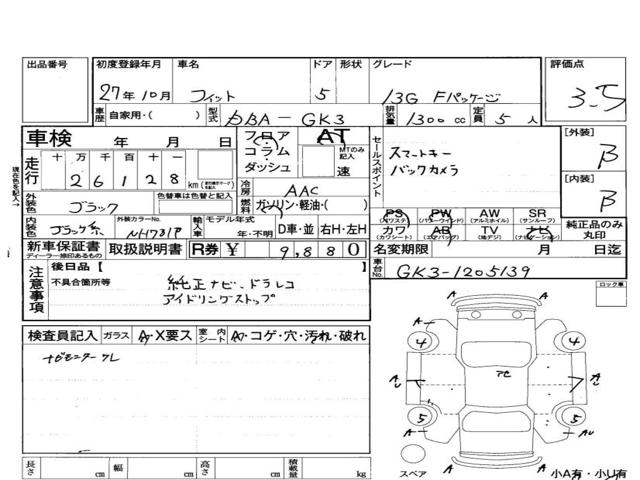 出品番号
初度登録年月 車名 ドア 形状 グレード 評価点
27年10月 フィット 5 13G Fパッケージ 3.5
車歴 自家用・( ) 型式 DBA-GK3 排気量 1300cc 定員 5人
車検 年 月 日 フロア コラム ダッシュ AT MTのみ記入 速
セールスポイント スマートキー
バックカメラ
[外装] B
[内装] B
走行 十 万 千 百 十 一
2 6 1 2 8 km
冷房 AAC
燃料 ガソリン・軽油・( )
現在色を記入→
外装色 ブラック 色替車は色替と記入
内装色 ブラック系 外装カラーNo. NH731P 輸入車 モデル年式 年・不明 D車・並 右H・左H
PS (パワステ) PW (パワーウインド) AW (アルミホイル) SR (サンルーフ)
カワ (カワシート) AB (エアバッグ) TV (地デジ) ナビ (ナビゲーション)
純正品のみ丸印
新車保証書 ディーラー捺印あるもの 取扱説明書 R券 ¥ 9,880
名変期限 月 日迄
車台No. GK3-1205139
注意事項 後日品【
不具合箇所等 純正ナビ、ドラレコ
アイドリングストップ
ロック車
検査員記入 ガラス A・X要ス 室内シート A・コゲ・穴・汚れ・破れ
ナビモニタークレ
A A
A A
4 4
A
5 5
A A
A A
スペア
小A有・小U有
長さ cm 幅 cm 高さ cm 積載量 kg